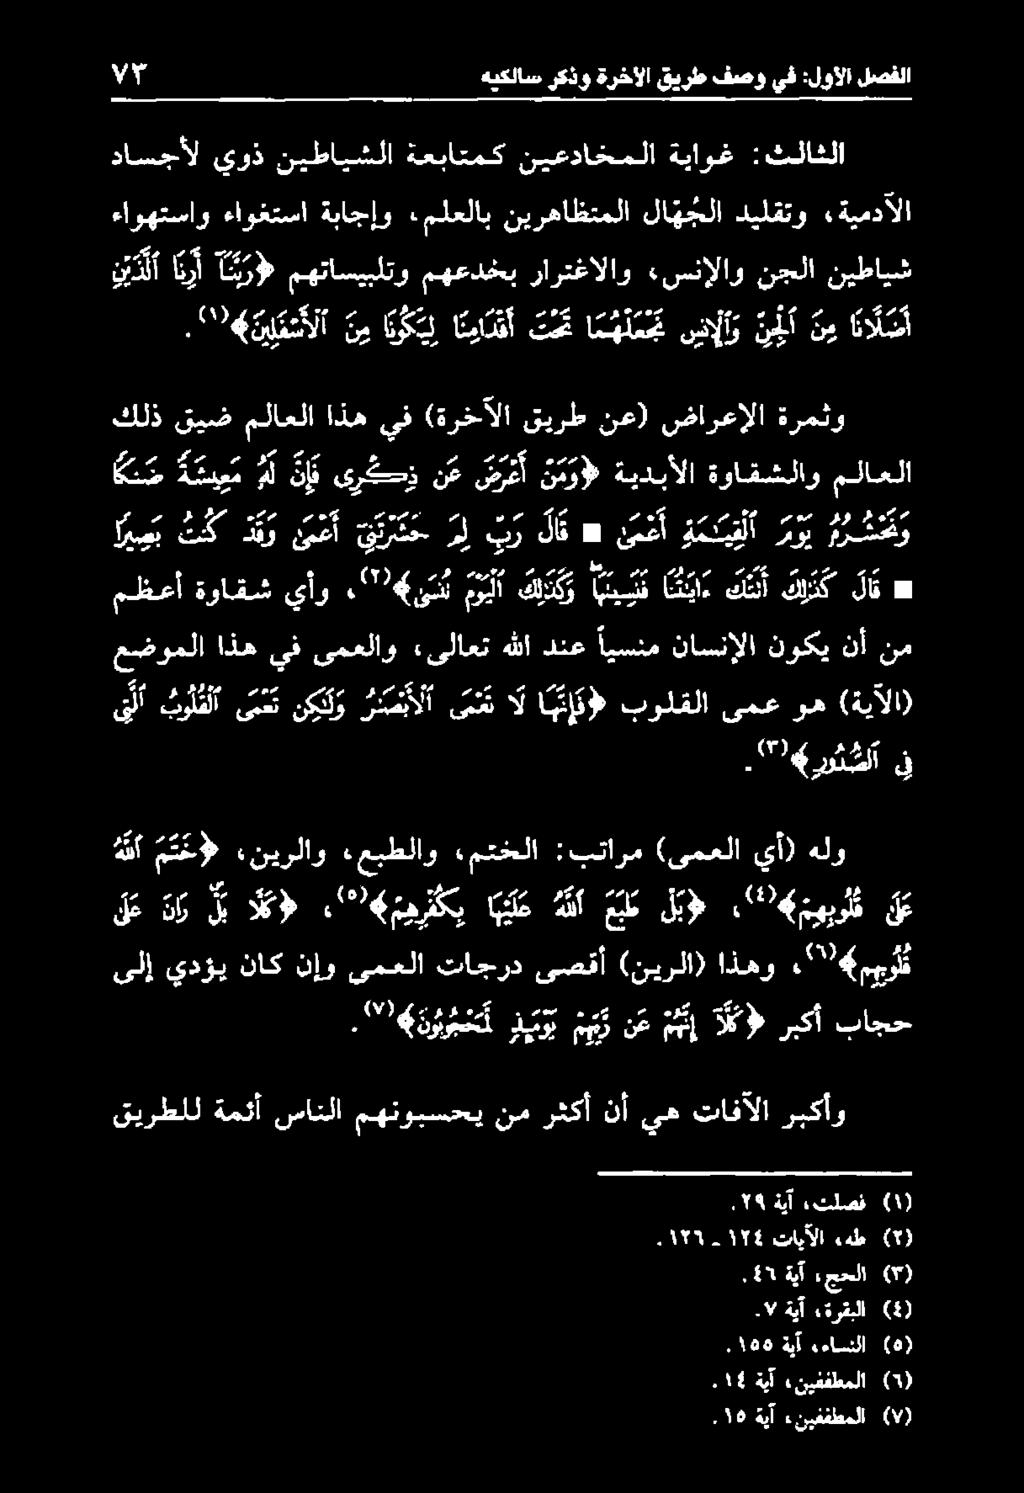 الفصل الأول: في وصف طريق الآخرة وذكر سالكيه ٧٣
الثالث: غواية المخادعين كمتابعة الشياطين ذوي الأجساد
الآدمية، وتقليد الجُهال المتظاهرين بالعلم، وإجابة استغواء واستهواء
شياطين الجن والإنس، والاغترار بخدعهم وتلبيساتهم ﴿رَبَّنَآ أَرِنَا ٱلَّذَيْنِ
أَضَلَّانَا مِنَ ٱلْجِنِّ وَٱلْإِنسِ نَجْعَلْهُمَا تَحْتَ أَقْدَامِنَا لِيَكُونَا مِنَ ٱلْأَسْفَلِينَ﴾(١).
وثمرة الإعراض (عن طريق الآخرة) في هذا العالم ضيق ذلك
العالم والشقاوة الأبدية ﴿وَمَنْ أَعْرَضَ عَن ذِكْرِى فَإِنَّ لَهُۥ مَعِيشَةً ضَنكًا
وَنَحْشُرُهُۥ يَوْمَ ٱلْقِيَٰمَةِ أَعْمَىٰ ■ قَالَ رَبِّ لِمَ حَشَرْتَنِىٓ أَعْمَىٰ وَقَدْ كُنتُ بَصِيرًا
■ قَالَ كَذَٰلِكَ أَتَتْكَ ءَايَٰتُنَا فَنَسِينَهَا ۖ وَكَذَٰلِكَ ٱلْيَوْمَ نُنسَىٰ﴾(٢)، وأي شقاوة أعظم
من أن يكون الإنسان منسياً عند الله تعالى، والعمى في هذا الموضع
(الآية) هو عمى القلوب ﴿فَإِنَّهَا لَا تَعْمَى ٱلْأَبْصَٰرُ وَلَٰكِن تَعْمَى ٱلْقُلُوبُ ٱلَّتِى
فِى ٱلصُّدُورِ﴾(٣).
وله (أي العمى) مراتب: الختم، والطبع، والرين، ﴿خَتَمَ ٱللَّهُ
عَلَىٰ قُلُوبِهِمْ﴾(٤)، ﴿بَلْ طَبَعَ ٱللَّهُ عَلَيْهَا بِكُفْرِهِمْ﴾(٥)، ﴿كَلَّا ۖ بَلْ ۜ رَانَ عَلَىٰ
قُلُوبِهِم﴾(٦)، وهذا (الرين) أقصى درجات العمى وإن كان يؤدي إلى
حجاب أكبر ﴿كَلَّآ إِنَّهُمْ عَن رَّبِّهِمْ يَوْمَئِذٍ لَّمَحْجُوبُونَ﴾(٧).
وأكبر الآفات هي أن أكثر من يحسبونهم الناس أئمة للطريق
(١) فصلت، آية ٢٩.
(٢) طه، الآيات ١٢٤ - ١٢٦.
(٣) الحج، آية ٤٦.
(٤) البقرة، آية ٧.
(٥) النساء، آية ١٥٥.
(٦) المطففين، آية ١٤.
(٧) المطففين، آية ١٥.